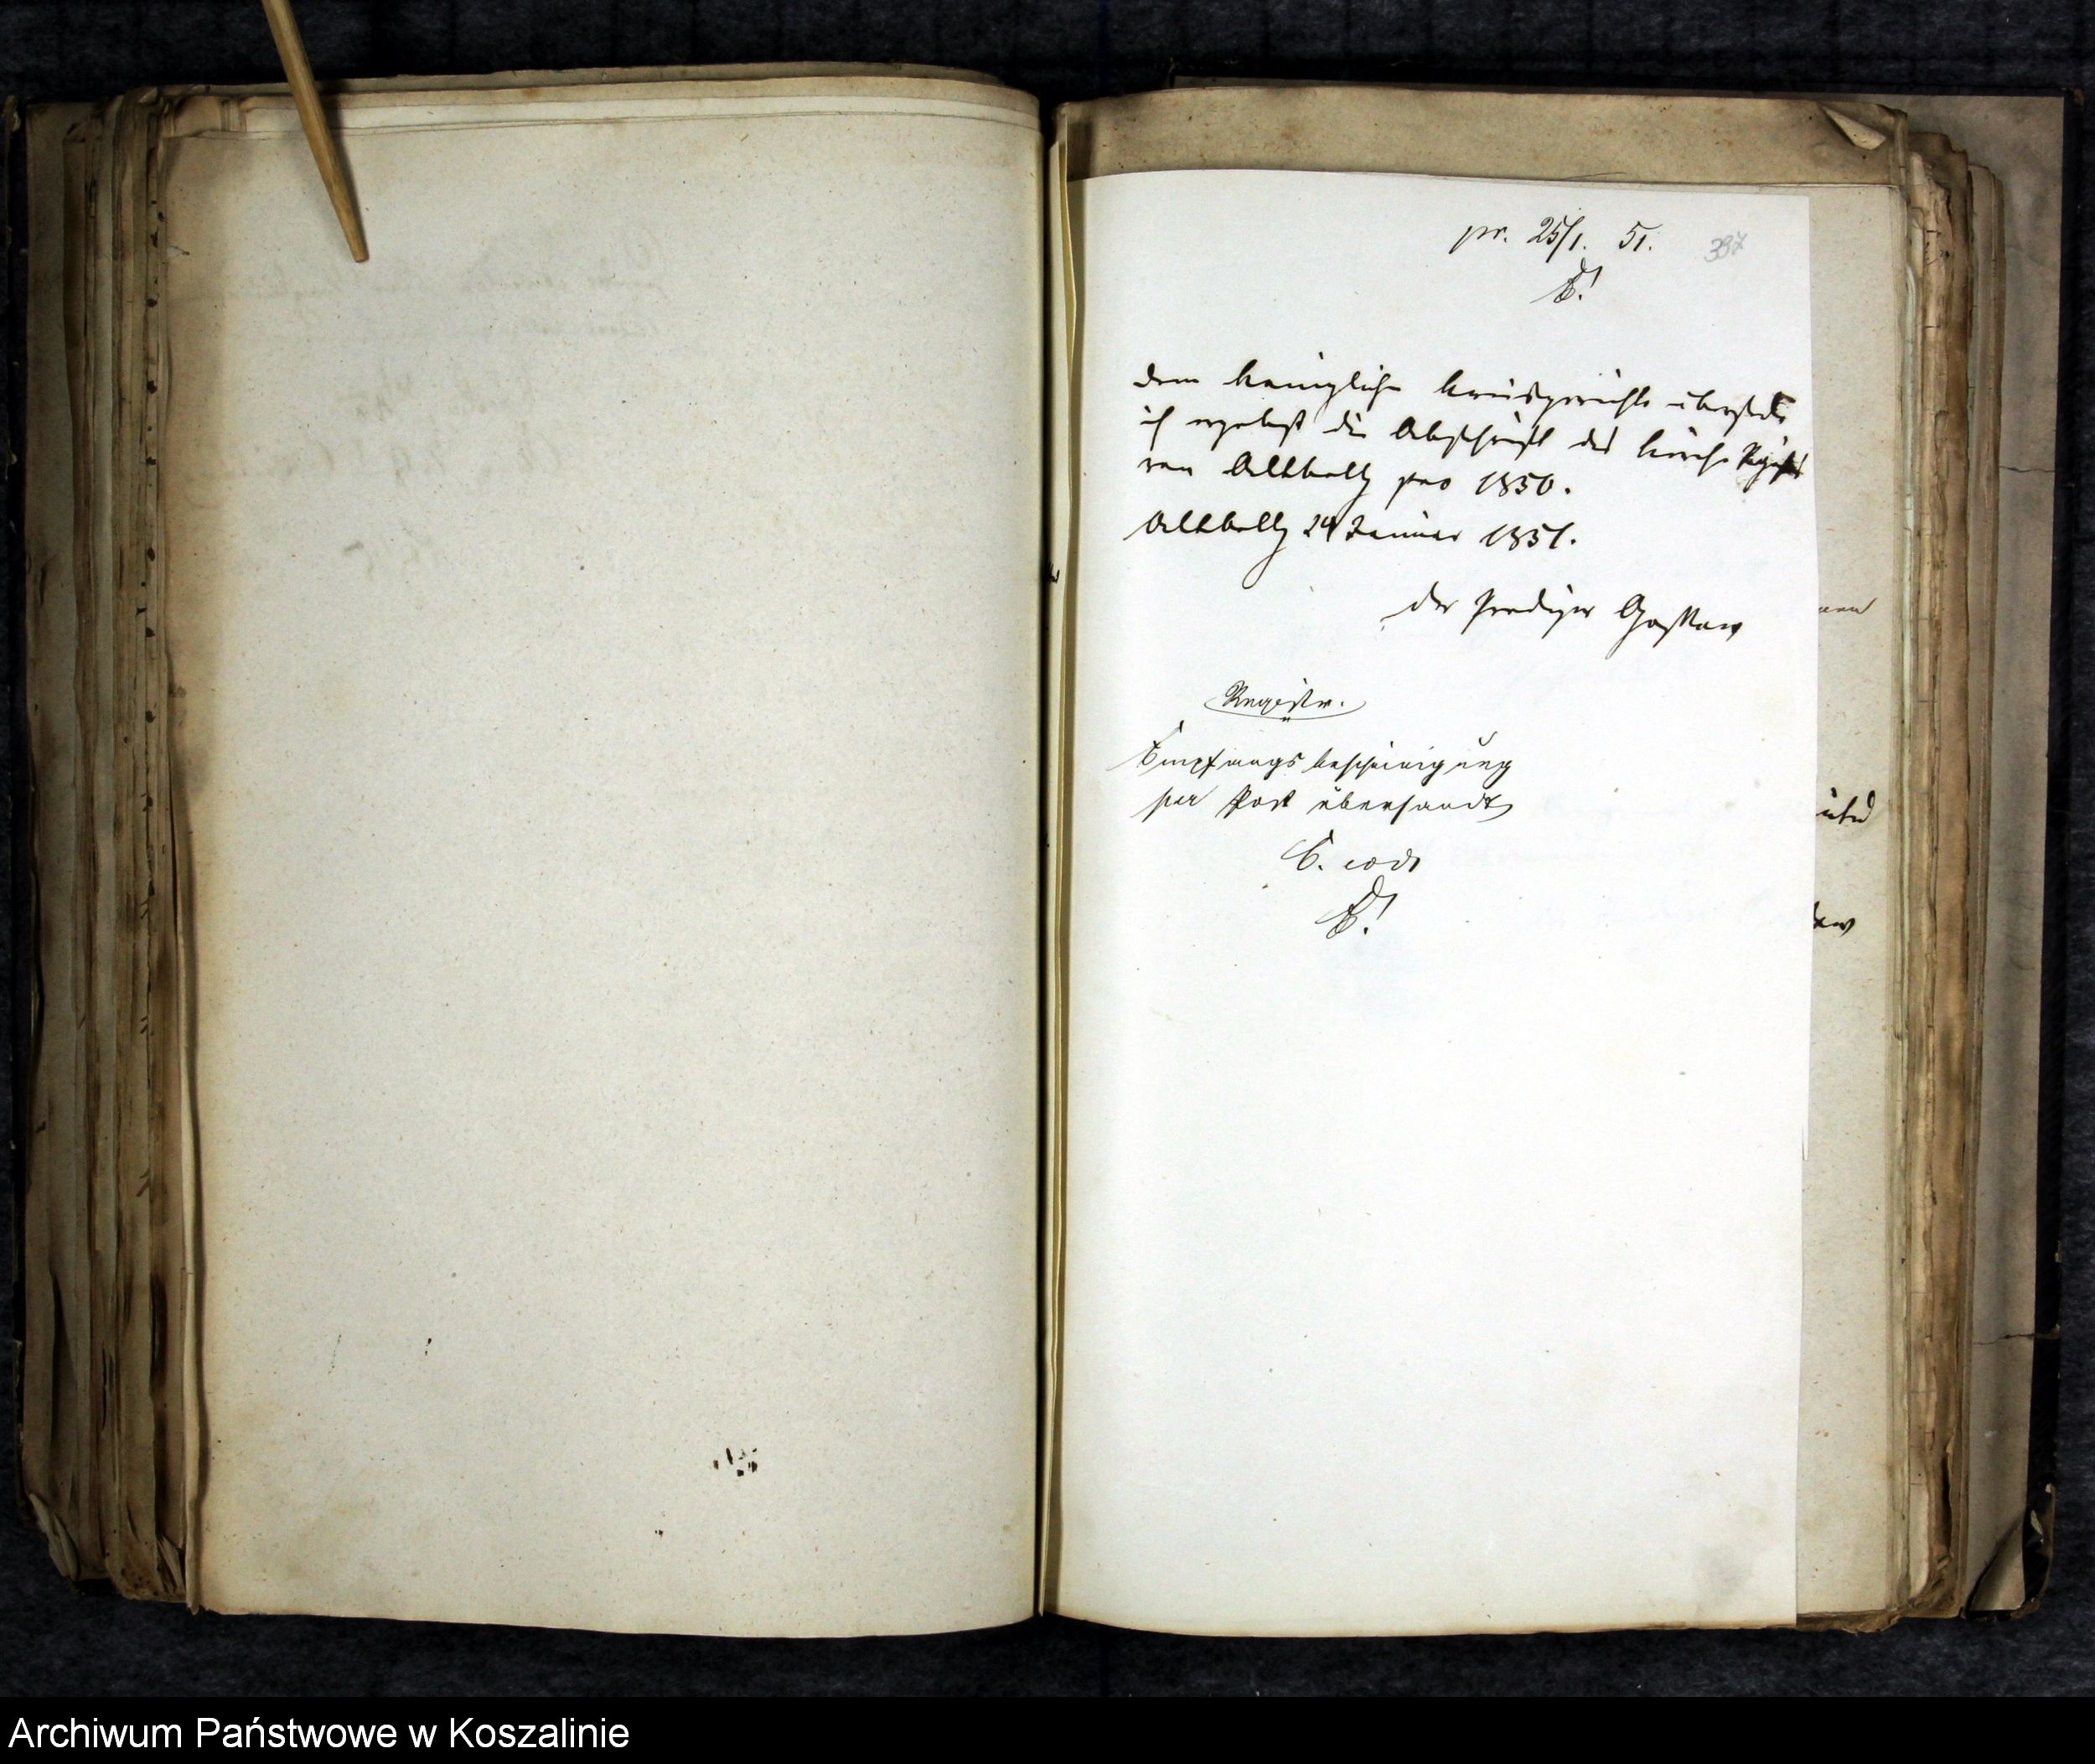 pr. 25/1. 51.
397
dem Königlichen Kreisgericht übersende
ich ergebenst die Abschrift des Kirchen Registers
von Altbelz pro 1850.
Altbelz 24 Januar 1851.
der Prediger Gostkow
Registr.
Empfangsbescheinigung
per Post übersandt
C. eod.
Archiwum Państwowe w Koszalinie